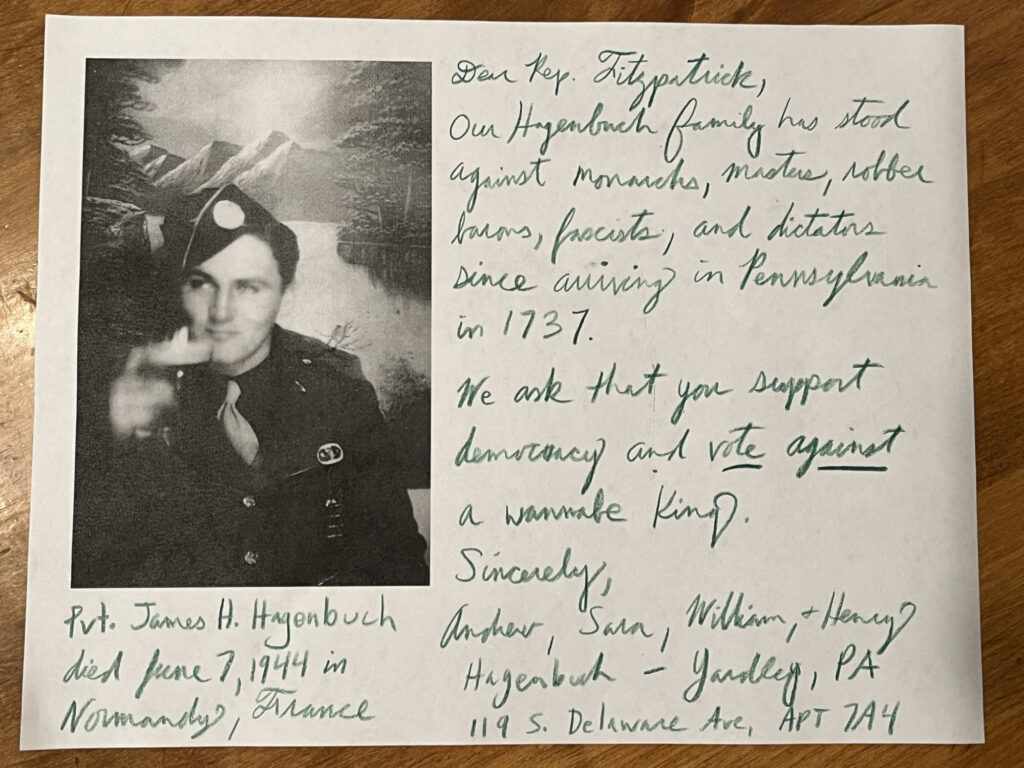 Dear Rep. Fitzpatrick,
Our Hagenbuch family has stood
against monarchs, masters, robber
barons, fascists, and dictators
since arriving in Pennsylvania
in 1737.
We ask that you support
democracy and vote against
a wannabe King.
Sincerely,
Andrew, Sara, William, + Henry
Hagenbuch – Yardley, PA
119 S. Delaware Ave, APT 7A4
Pvt. James H. Hagenbuch
died June 7, 1944 in
Normandy, France